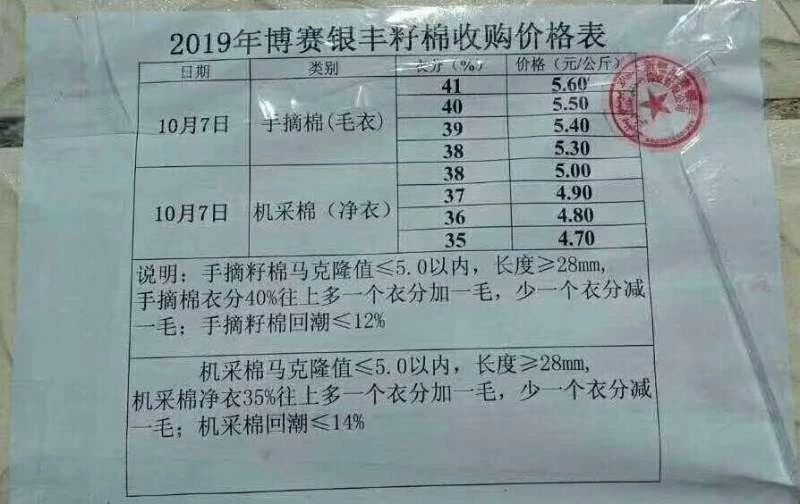 2019年博赛银丰籽棉收购价格表
日期 类别 衣分（%） 价格（元/公斤）
10月7日 手摘棉(毛衣) 41 5.60
40 5.50
39 5.40
38 5.30
10月7日 机采棉（净衣） 38 5.00
37 4.90
36 4.80
35 4.70
说明；手摘籽棉马克隆值≤5.0以内，长度≥28mm,
手摘棉衣分40%往上多一个衣分加一毛，少一个衣分减
一毛；手摘籽棉回潮≤12%
机采棉马克隆值≤5.0以内，长度≥28mm,
机采棉净衣35%往上多一个衣分加一毛，少一个衣分减
一毛；机采棉回潮≤14%